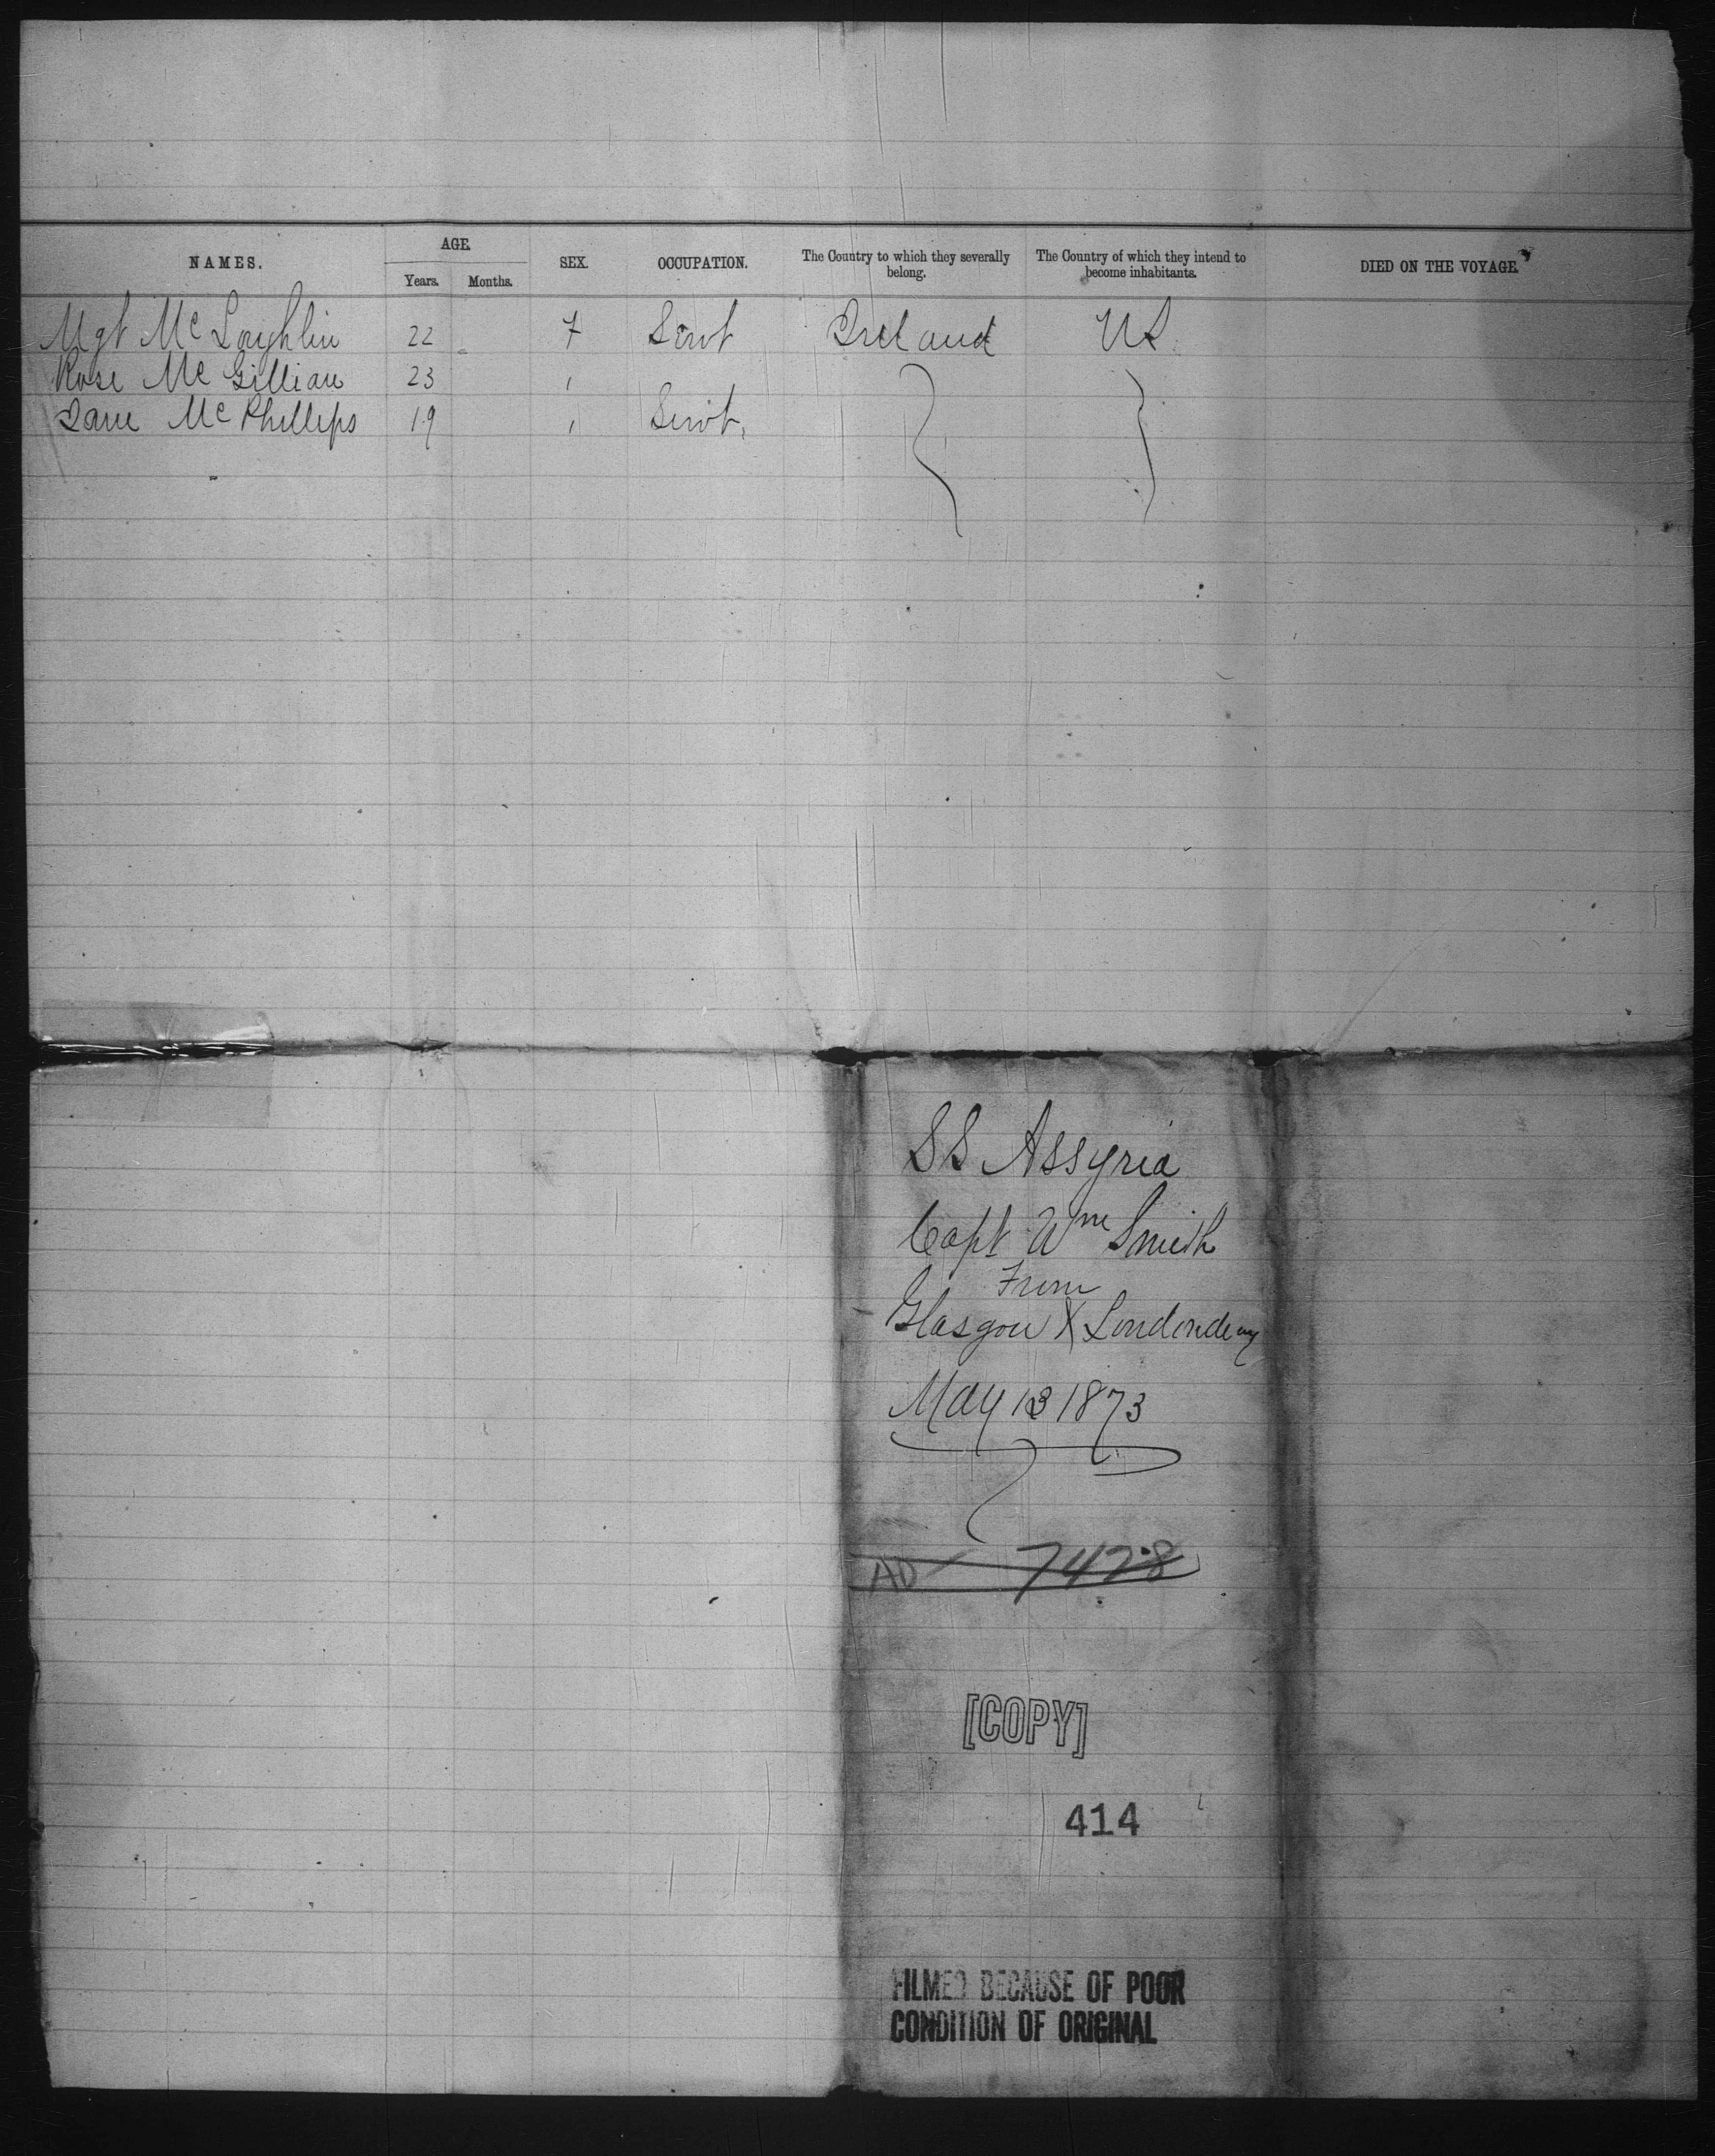 NAMES. AGE. SEX. OCCUPATION. The Country to which they severally belong. The Country of which they intend to become inhabitants. DIED ON THE VOYAGE.
Years. Months.
Mgt Mc Loughlin 22 F Servt Ireland US
Rose Mc Gillian 23 "
Jane Mc Phillips 19 " Servt.
SS Assyria
Capt Wm Smith
From
Glasgow & Londonderry
May 13 1873
AD 7478
[COPY]
414
FILMED BECAUSE OF POOR
CONDITION OF ORIGINAL